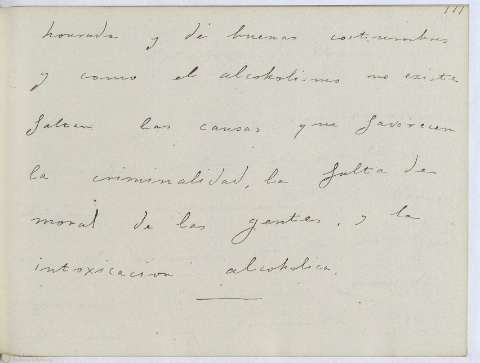 111
honrada y de buenas costumbres
y como el alcoholismo no existe
faltan las causas que favorecen
la criminalidad, la falta de
moral de las gentes, y la
intoxicacion alcoholica.